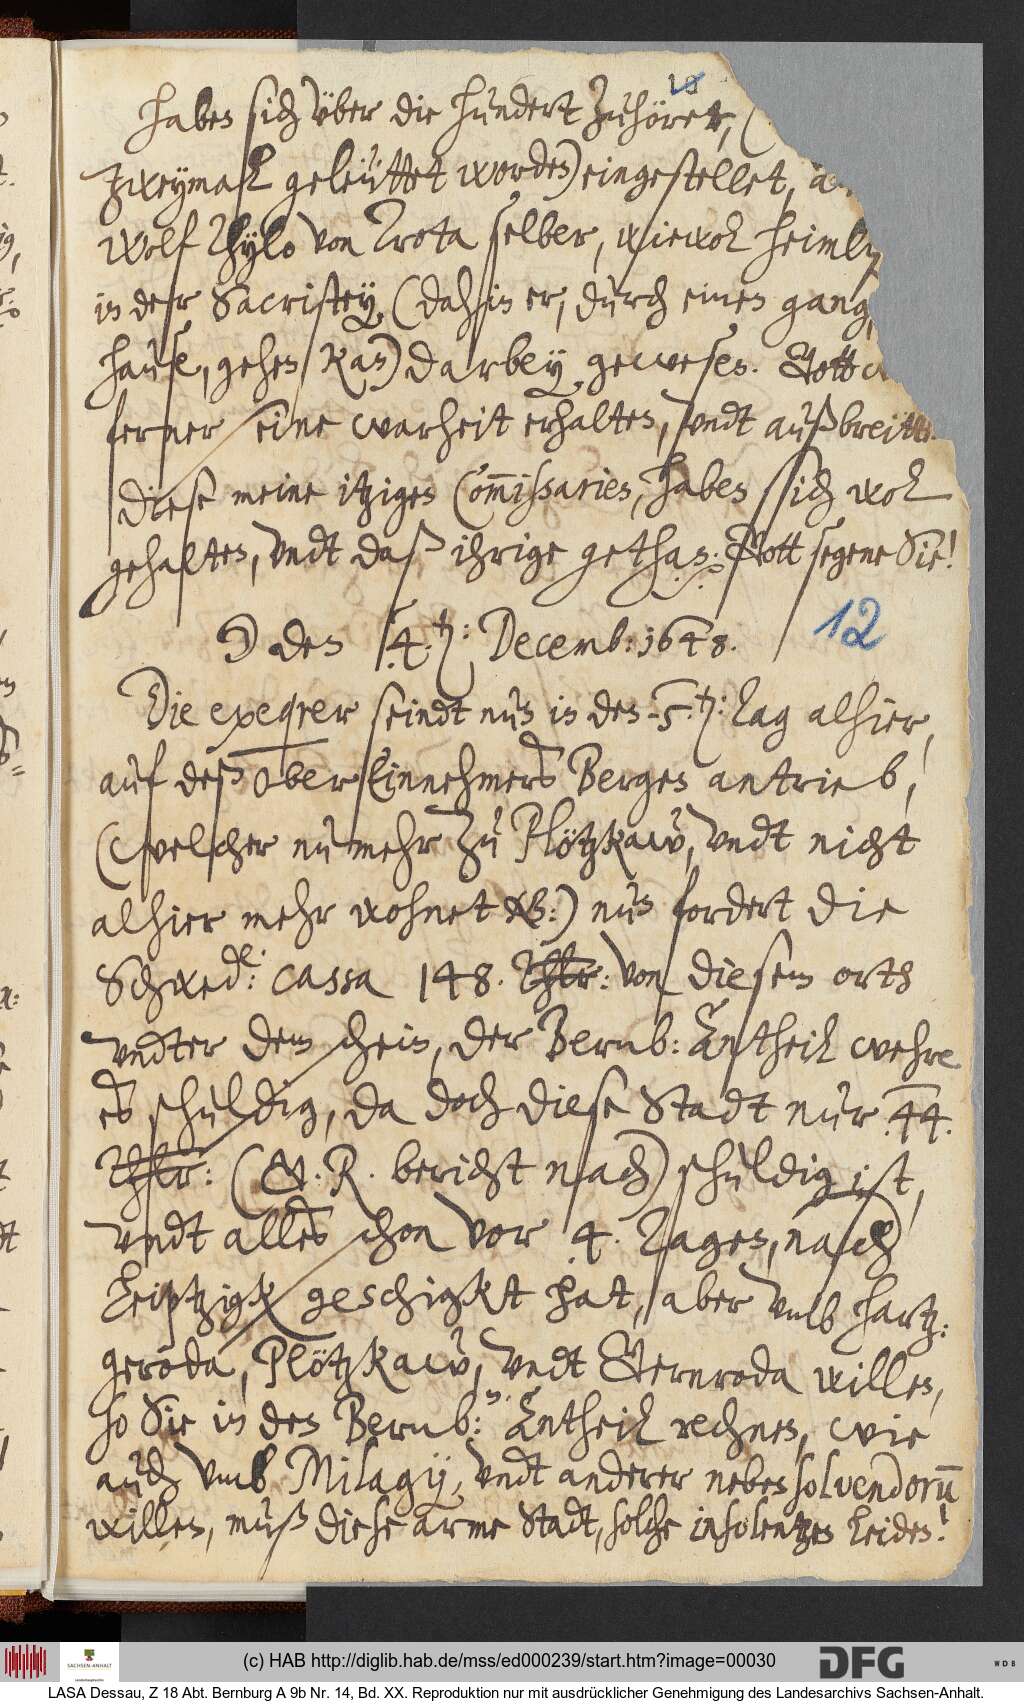 haben sich vber die hundert Zuhörer, (
Zweymahl geleüttet worden) eingestellet,
Wolf Thylo von Trota selber, wiewol heimly
in der Sacristey (dahin er, durch einen gang,
hause, gehen kan) darbey gewesen. Gott
ferner seine warheit erhalten, vndt außbreitte.
Diese meine itzigen Commissarien, haben sich wol
gehalten, vndt daß ihrige gethan. Gott segene Sie!
12
☽ den 4.ten: Decemb: 1648.
Die exeqrer seindt nun in den 5.ten: Tag alhier,
auf deß Ober Einnehmers Bergen antrieb,
(welcher nunmehr zu Plötzkaw, vndt nicht
alhier mehr wohnet NB:) nun fordert die
Schwed.e: cassa 148. Thlr: von diesem orth
vndter dem schein, der Bernb: Antheil wehre
es schuldig, da doch diese Stadt nur 44.
Thlr: (A. R. bericht nach) schuldig ist,
vndt alles schon vor 4. Tagen, nach
Leiptzigk geschigkt hat, aber vmb Hartz:
geroda, Plötzkaw, vndt Gernroda willen,
so Sie in den Bernb:n. Antheil rechnen, wie
auch vmb Milagij, vndt anderer neben solvendorum
willen, muß diese arme Stadt, solche insolentzen leiden!
(c) HAB http://diglib.hab.de/mss/ed000239/start.htm?image=00030
SACHSEN-ANHALT
DFG
WDB
LASA Dessau, Z 18 Abt. Bernburg A 9b Nr. 14, Bd. XX. Reproduktion nur mit ausdrücklicher Genehmigung des Landesarchivs Sachsen-Anhalt.